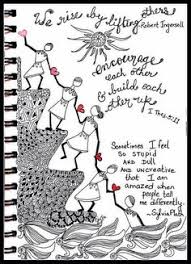 We rise by lifting others
Robert Ingersoll
encourage
each other
& builds each
other up
I Thes 5:11
Sometimes I feel
so stupid
and dull
and uncreative
that I am
amazed when
people tell
me differently.
~Sylvia Plath